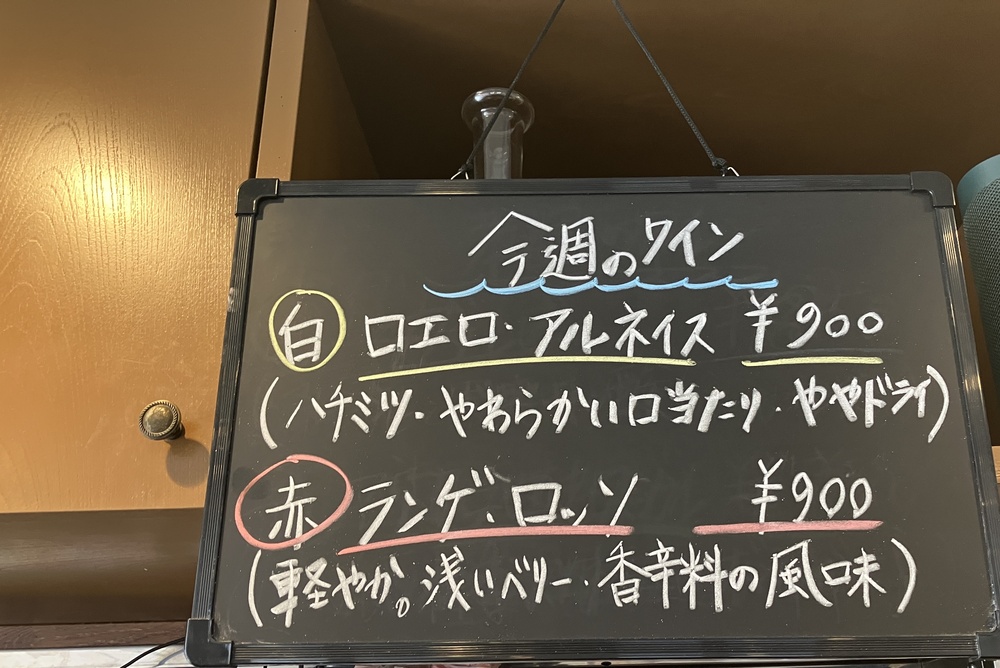 今週のワイン
白 ロエロ・アルネイス ¥900
(ハチミツ・やわらかい口当たり・ややドライ)
赤 ランゲ・ロッソ ¥900
(軽やか。浅いベリー・香辛料の風味)